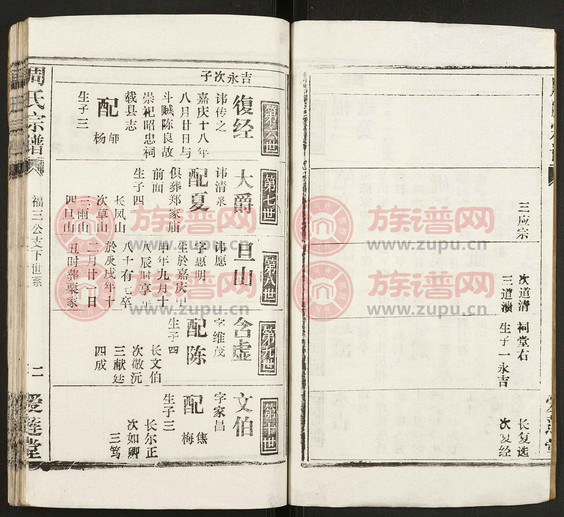 三应宗
次道清 祠堂右
三道濒 生子一永吉
长复选
次复经
吉永次子
第六世
復经
讳传之
嘉庆十八年
八月廿日与
斗贼陈良故
崇祀昭忠祠
载县志
配
杨
生子三
第七世
大爵
讳清泉
配夏
俱葬郑家庙
前面
生子四
长凤山
次草山
三雨山
四旦山
第八世
旦山
讳愿
字愿明
生於嘉庆甲
甲年九月十
八辰时享年
八十有七卒
於庚戌年十
二月廿一日
丑时葬栗家
第九世
含虚
字维茂
配陈
生子四
长文伯
次敬沅
三献廷
四成
第十世
文伯
字家昌
配
焦
梅
生子三
长尔正
次如卿
三笃
周氏宗谱
福三公支下世系
二
爱莲堂
族谱网
www.zupu.cn
族谱网
www.zupu.cn
族谱网
www.zupu.cn
族谱网
www.zupu.cn